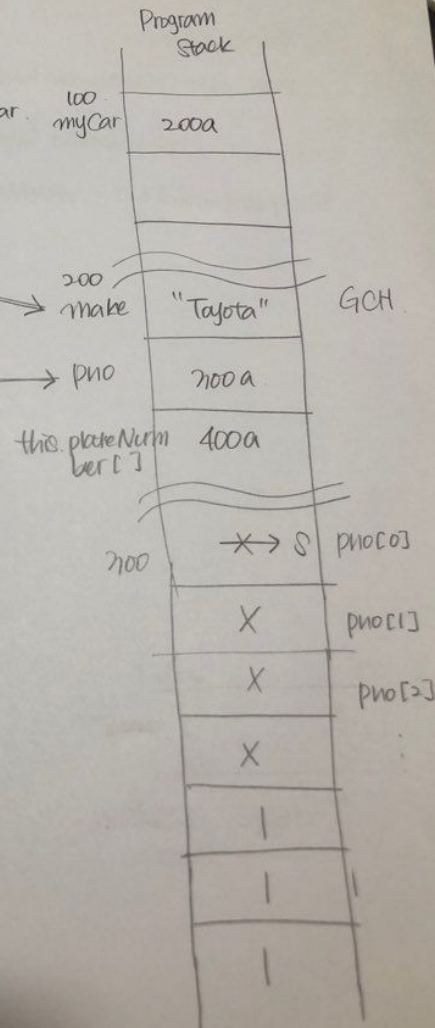 Program
Stack
ar.
100
myCar 200a
200
make "Tayota" GCH
pno 300a
this.plateNum
ber[] 400a
300 X → S pno[0]
X pno[1]
X pno[2]
X :
1
1
1